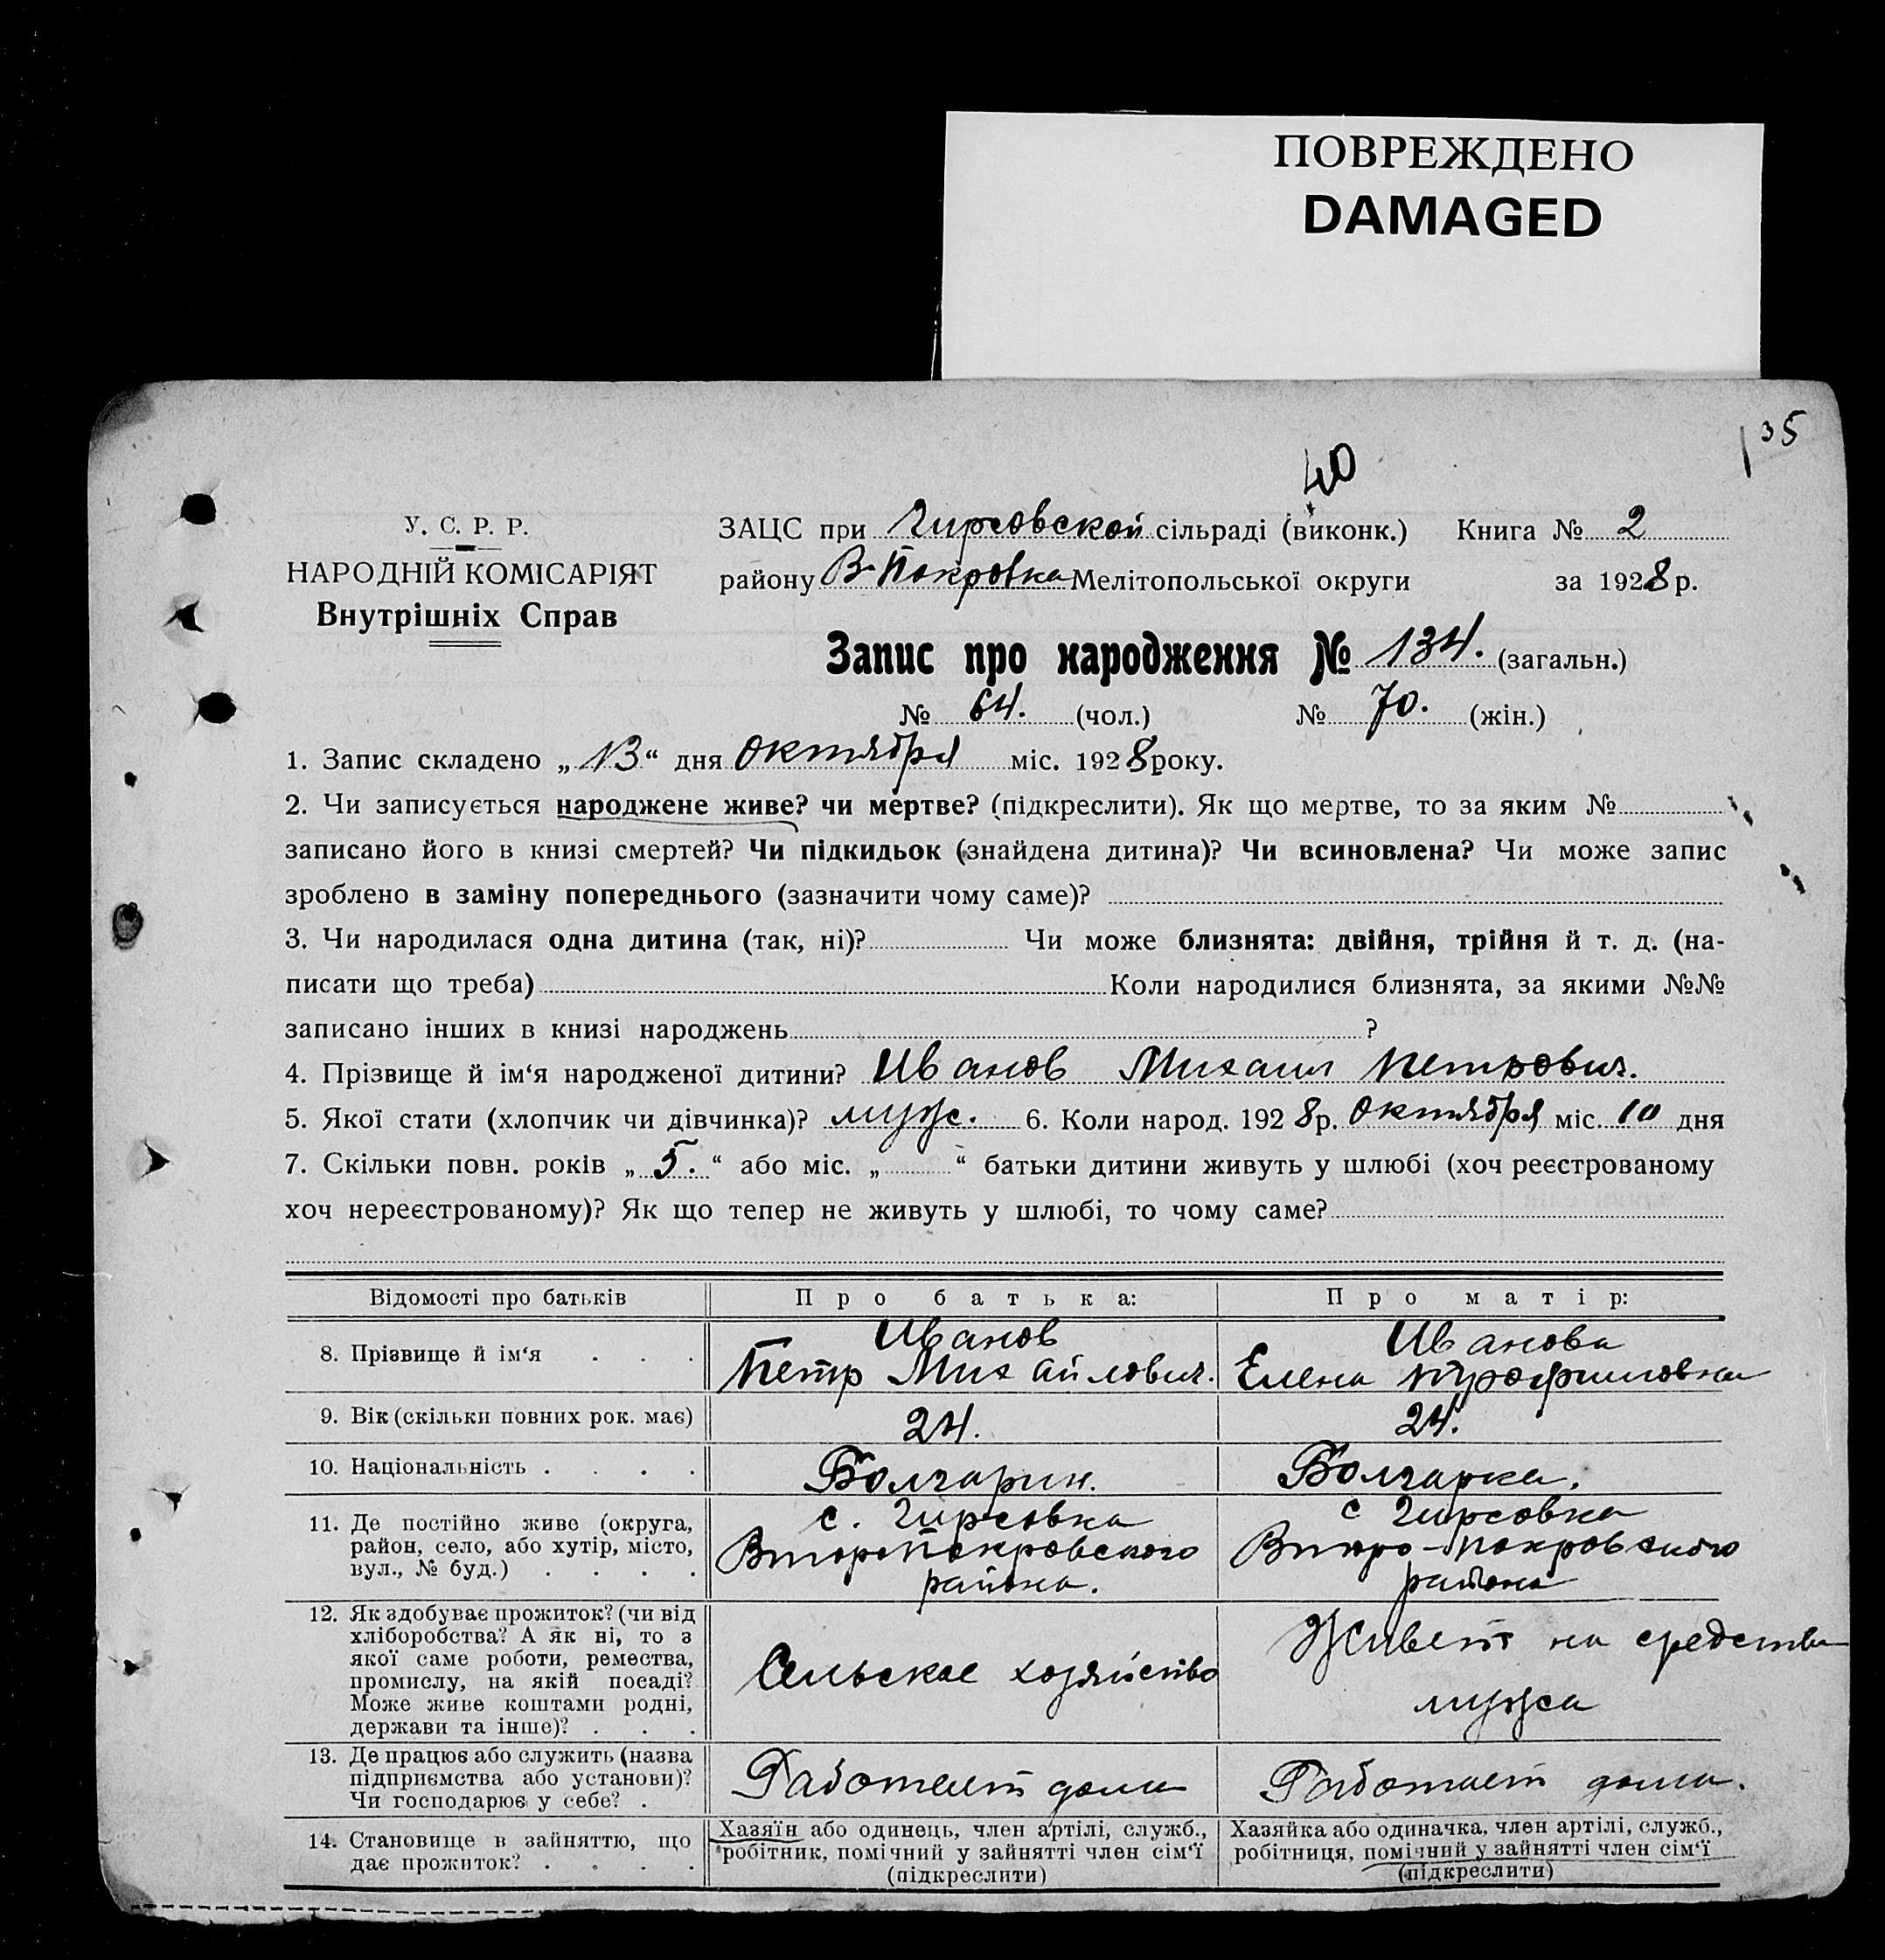 ПОВРЕЖДЕНО
DAMAGED
35
40
У. С. Р. Р.
НАРОДНІЙ КОМІСАРІЯТ
Внутрішніх Справ
ЗАЦС при Гирсовской сільраді (виконк.) Книга № 2
району В-Покровка Мелітопольської округи за 1928 р.
Запис про народження № 134. (загальн.)
№ 64. (чол.) № 70. (жін.)
1. Запис складено „13“ дня октября міс. 1928 року.
2. Чи записується народжене живе? чи мертве? (підкреслити). Як що мертве, то за яким №
записано його в книзі смертей? Чи підкидьок (знайдена дитина)? Чи всиновлена? Чи може запис
зроблено в заміну попереднього (зазначити чому саме)?
3. Чи народилася одна дитина (так, ні)? Чи може близнята: двійня, трійня й т. д. (на-
писати що треба) Коли народилися близнята, за якими №№
записано інших в книзі народжень ?
4. Прізвище й ім‘я народженої дитини? Иванов Михаил Петрович.
5. Якої стати (хлопчик чи дівчинка)? муж. 6. Коли народ. 1928 р. октября міс. 10 дня
7. Скільки повн. років „5.“ або міс. „ “ батьки дитини живуть у шлюбі (хоч реєстрованому
хоч нереєстрованому)? Як що тепер не живуть у шлюбі, то чому саме?
Відомості про батьків Про батька: Про матір:
8. Прізвище й ім‘я . . .
Иванов
Петр Михайлович.
Иванова
Елена Трофимовна
9. Вік (скільки повних рок. має) 24. 24.
10. Національність . . . . Болгарин. Болгарка.
11. Де постійно живе (округа,
район, село, або хутір, місто,
вул., № буд.) . . . .
с. Гирсовка
Второпокровского
района.
с Гирсовка
Второ-Покровского
района
12. Як здобуває прожиток? (чи від
хліборобства? А як ні, то з
якої саме роботи, ремества,
промислу, на якій посаді?
Може живе коштами родні,
держави та інше)? . . .
Сельское хозяйство
Живет на средства
мужа
13. Де працює або служить (назва
підприємства або установи)?
Чи господарює у себе? .
Работает дома
Работает дома.
14. Становище в зайняттю, що
дає прожиток? . . . .
Хазяїн або одинець, член артілі, служб.,
робітник, помічний у зайнятті член сім‘ї
(підкреслити)
Хазяйка або одиначка, член артілі, служб.,
робітниця, помічний у зайнятті член сім‘ї
(підкреслити)